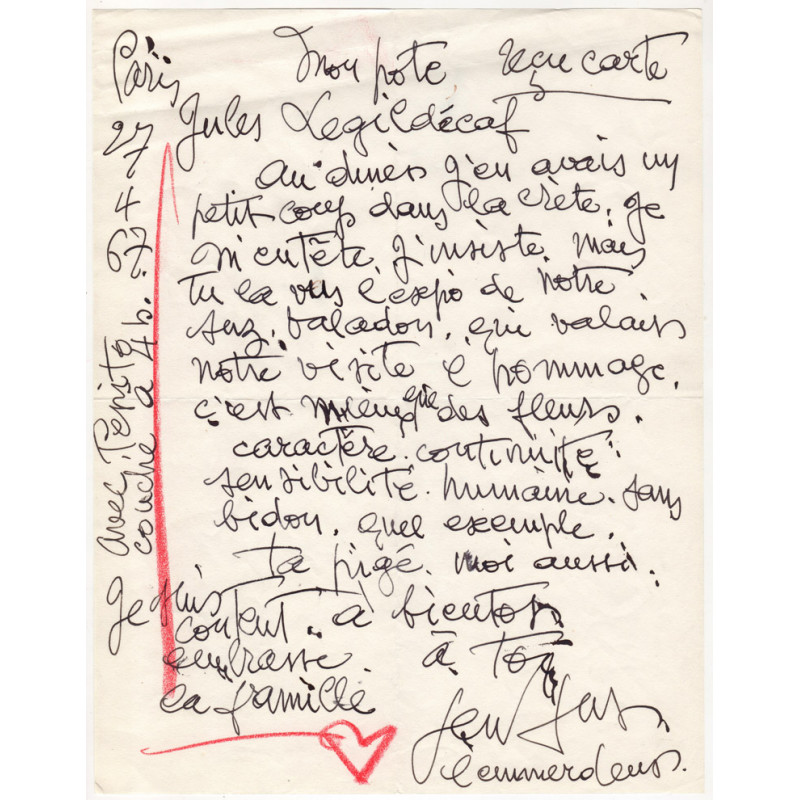 Mon pote reçu carte
Jules Legildécaf
au diner j'en avais un
petit coup dans la crète. je
m'entête. j'insiste. mais
tu la vus l'expo de notre
suz. valadon. que valais
notre visite é hommage.
c'est mieux que des fleurs.
caractère. continuité.
sensibilité. humaine. sans
bidon. quel exemple.
ta pigé. moi aussi.
Je suis
content. a bientot
embrasse. à toi
la famille
l'emmerdeur.
Paris
27
4
67
avec Pépito
couché a 4 h.